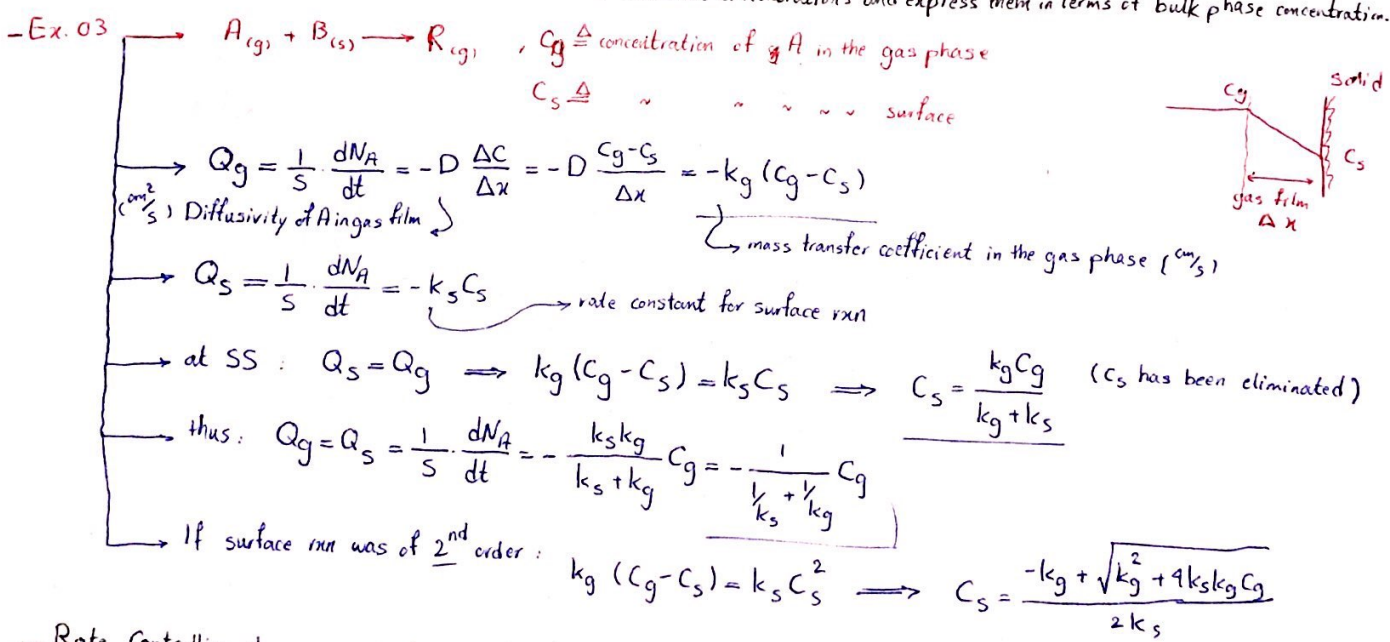 and express them in terms of bulk phase concentration.
- Ex. 03 → A(g) + B(s) → R(g) , Cg ≜ concentration of A in the gas phase
Cs ≜ ~ ~ ~ ~ ~ surface
Cg solid
Cs
gas film
Δx
→ Qg = 1/S · dNA/dt = -D ΔC/Δx = -D (Cg-Cs)/Δx = -kg (Cg-Cs)
(cm²/s) Diffusivity of A in gas film
mass transfer coefficient in the gas phase (cm/s)
→ Qs = 1/S · dNA/dt = -ksCs
→ rate constant for surface rxn
→ at SS : Qs = Qg ⇒ kg (Cg-Cs) = ksCs ⇒ Cs = kgCg/(kg+ks) (Cs has been eliminated)
→ thus: Qg = Qs = 1/S · dNA/dt = - kskg/(ks+kg) Cg = - 1/(1/ks + 1/kg) Cg
→ If surface rxn was of 2nd order :
kg (Cg-Cs) = ksCs² ⇒ Cs = (-kg + √(kg² + 4kskgCg))/(2ks)
Rate